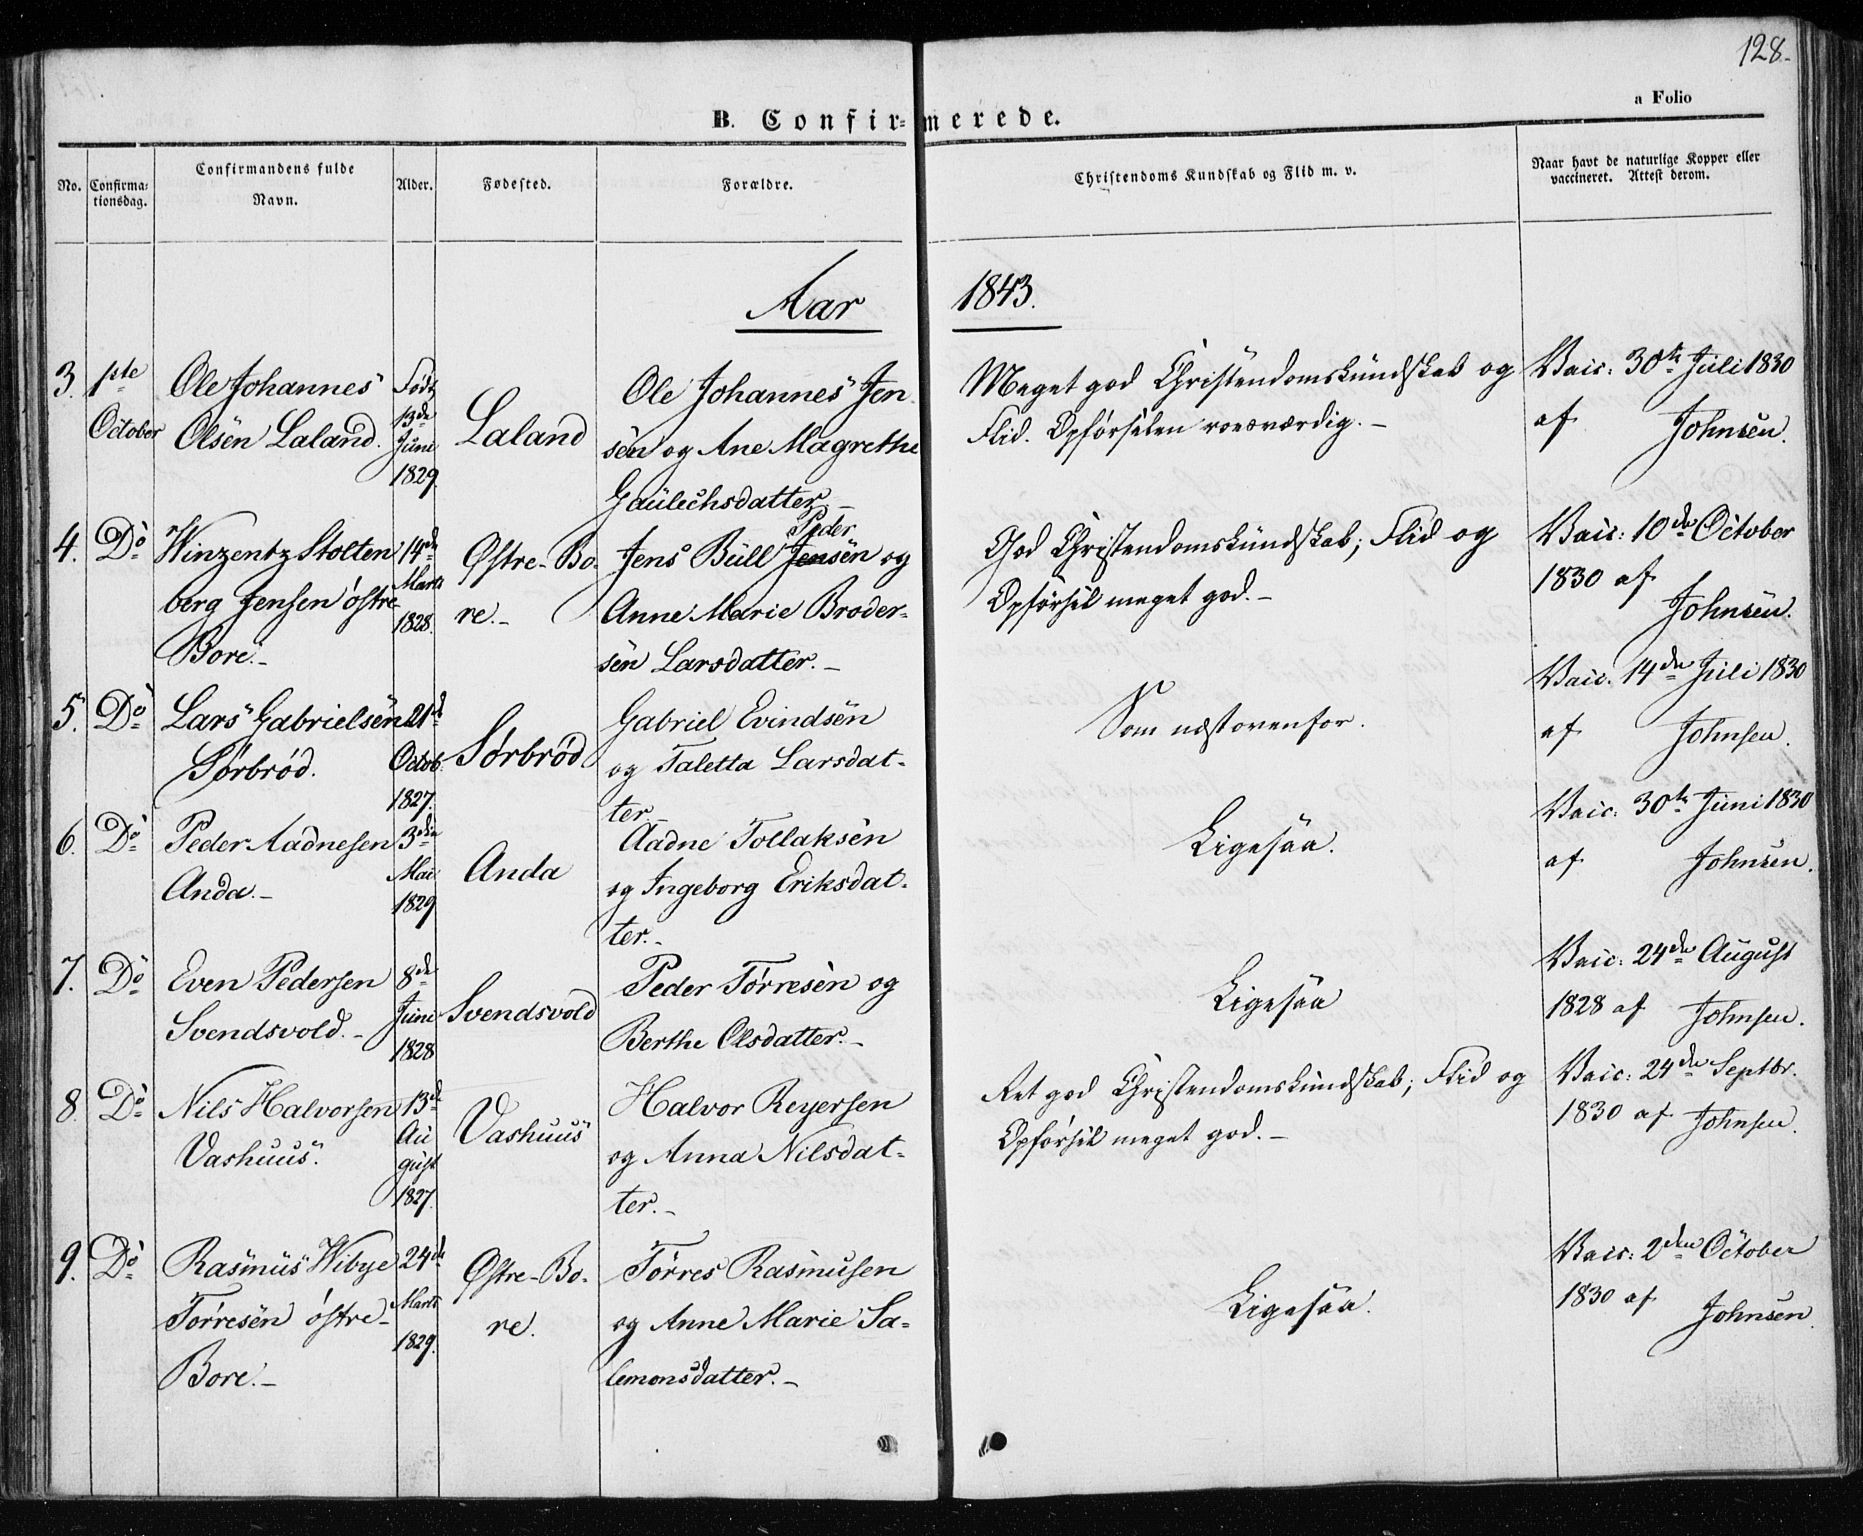 128.
a Folio
B. Confir=merede.
No.
Confirma=
tionsdag.
Confirmandens fulde
Navn.
Alder.
Fødested.
Forældre.
Christendoms Kundskab og Flid m. v.
Naar havt de naturlige Kopper eller
vaccineret. Attest derom.
Aar 1843.
3.
1ste
October
Ole Johannes
Olsen Laland.
Født
13de
Juni
1829.
Laland
Ole Johannes Jen
sen og Ane Magrethe
Gaulechsdatter. –
Meget god Christendomskundskab og
Flid. Opførselen roesværdig. –
Vacc: 30te Juli 1830
af Johnsen.
4.
Do
Winzentz Stolten
berg Jensen østre
Bore. –
14de
Marts
1828.
Østre-Bo-
re. –
Peder
Jens Büll Jensen og
Anne Marie Broder-
sen Larsdatter. –
God Christendomskundskab; Flid og
Opførsel meget god. –
Vacc: 10de October
1830 af
Johnsen.
5.
Do
Lars Gabrielsen
Sørbrød.
21de
Octob.
1827.
Sørbrød
Gabriel Evindsen
og Taletta Larsdat-
ter
Som næstovenfor.
Vacc. 14de Juli 1830
af Johnsen.
6.
Do
Peder Aadnesen
Anda. –
3die
Mai
1829
Anda
Aadne Tollaksen
og Ingeborg Eriksdat-
ter. –
Ligesaa.
Vacc: 30te Juni 1830
af Johnsen.
7.
Do
Even Pedersen
Svendsvold. –
8de
Juni
1828
Svendsvold
Peder Tørresen og
Berthe Olsdatter. –
Ligesaa
Vacc: 24de August
1828 af Johnsen.
8.
Do
Nils Halvorsen
Vashuus.
13de
Au
gust
1827.
Vashuus
Halvor Reyersen
og Anna Nilsdat-
ter. –
Ret god Christendomskundskab; Flid og
Opførsel meget god. –
Vacc: 24de Septbr.
1830 af Johnsen.
9.
Do
Rasmus Wibye
Tørresen østre-
Bore. –
24de
Marts
1829.
Østre-Bo-
re.
Tørres Rasmusen
og Anne Marie Sa-
lemonsdatter. –
Ligesaa.
Vacc: 2den October
1830 af
Johnsen.